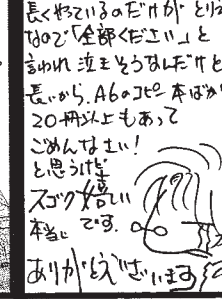 長くやっているのだけが とりえ
なので「全部ください」と
言われ 泣きそうなんだけど
長いから、A6のコピー本ばかり
20冊以上もあって
ごめんなさい!
と思うけど
スゴク嬉しい
本当に です.
ありがとうございます